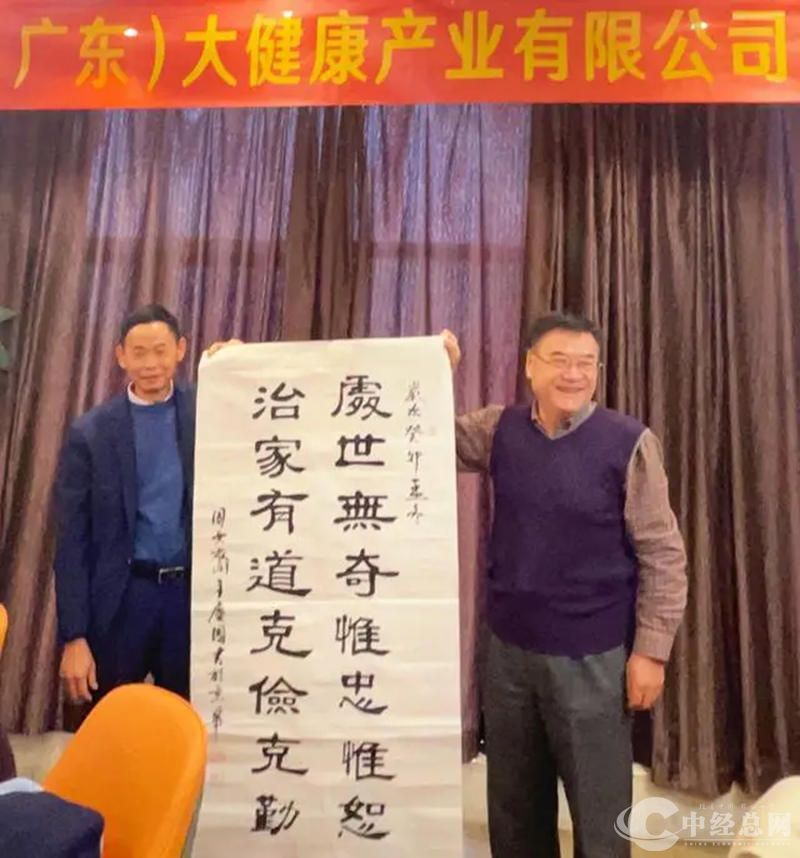 广东）大健康产业有限公司
歲次癸卯孟冬
處世無奇惟忠惟恕
治家有道克儉克勤
中经总网
CHINA ECONOMIC NETWORK